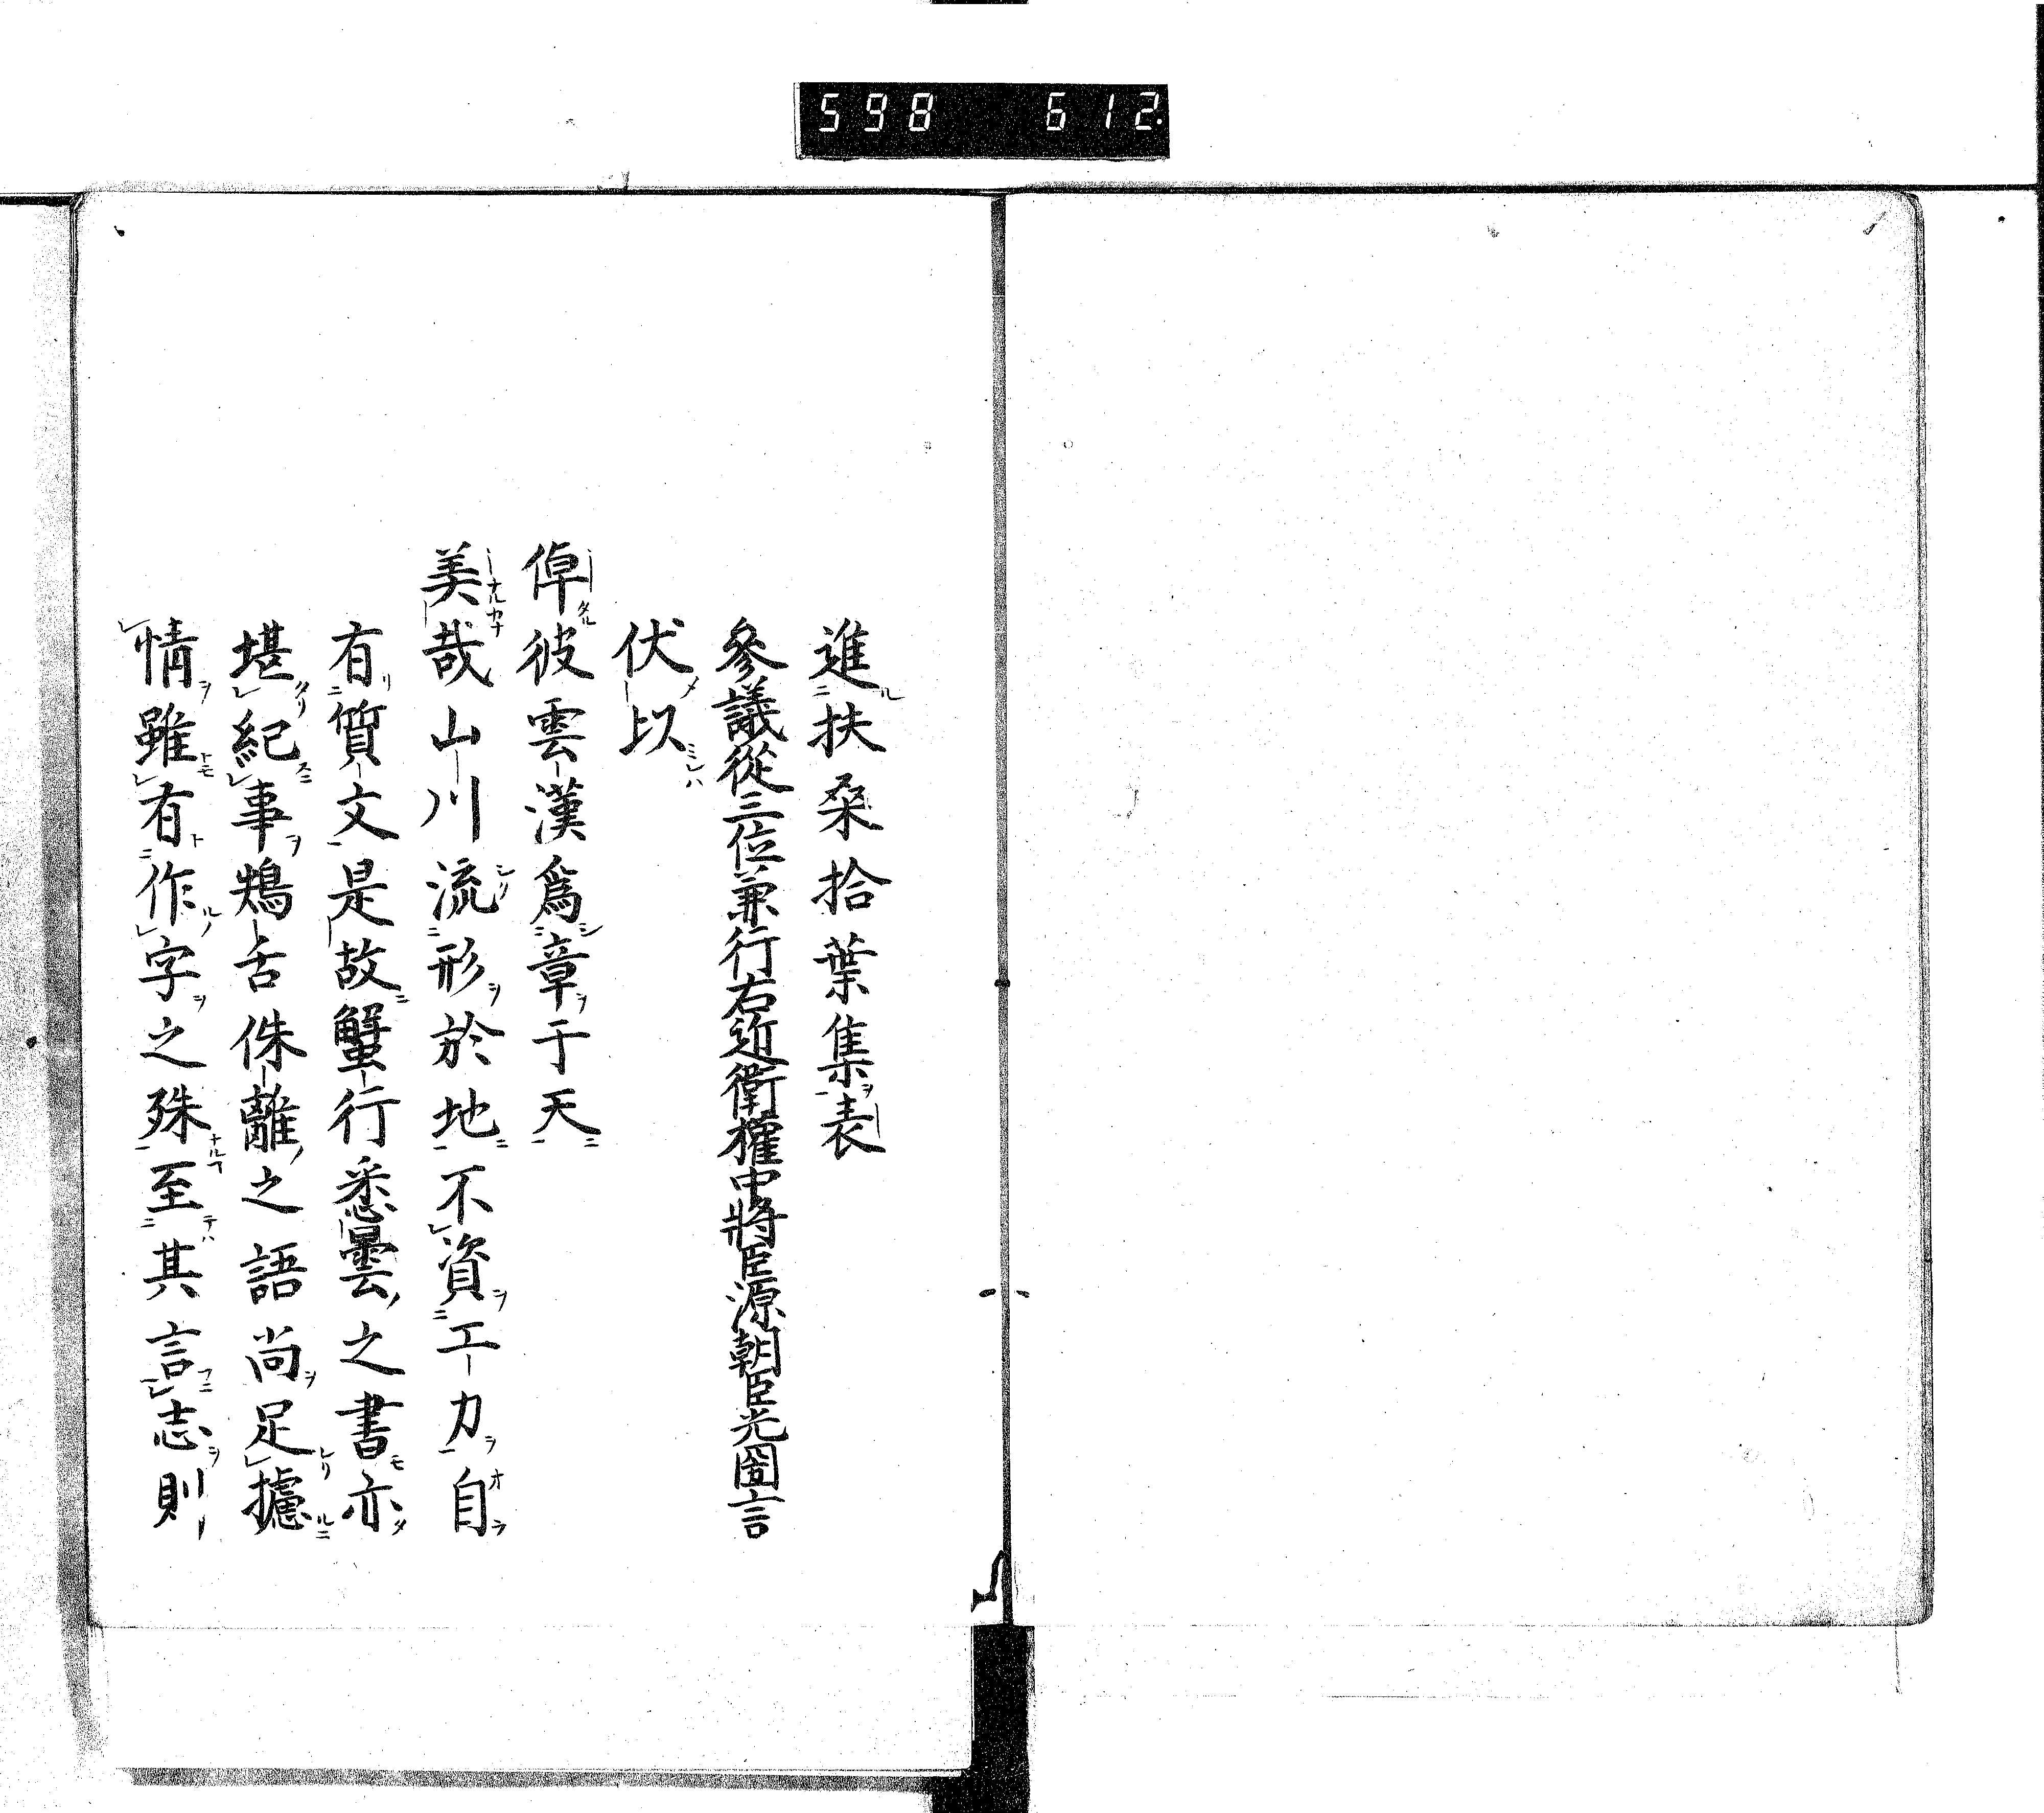 598 612.
進扶桑拾葉集表
參議從三位兼行右近衛權中將臣源朝臣光圀言
伏以
倬彼雲漢爲章于天
美哉山川流形於地不資工力自
有質文是故蟹行悉曇之書亦
堪紀事鴂舌侏離之語尚足攄
情雖有作字之殊至其言志則